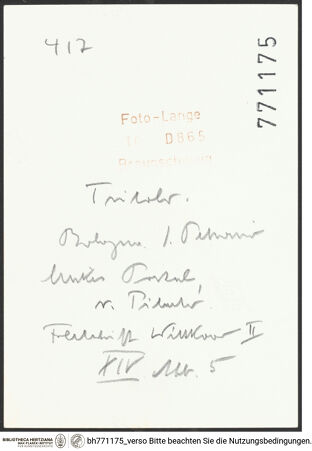 417
771175
Foto-Lange
D865
Braunschweig
Tribolo.
Bologna. S. Petronio
linkes Portal,
r. Pilaster.
Festschrift Wittkower II
XIV Abb. 5
BIBLIOTHECA HERTZIANA
MAX-PLANCK-INSTITUT
FÜR KUNSTGESCHICHTE
bh771175_verso Bitte beachten Sie die Nutzungsbedingungen.